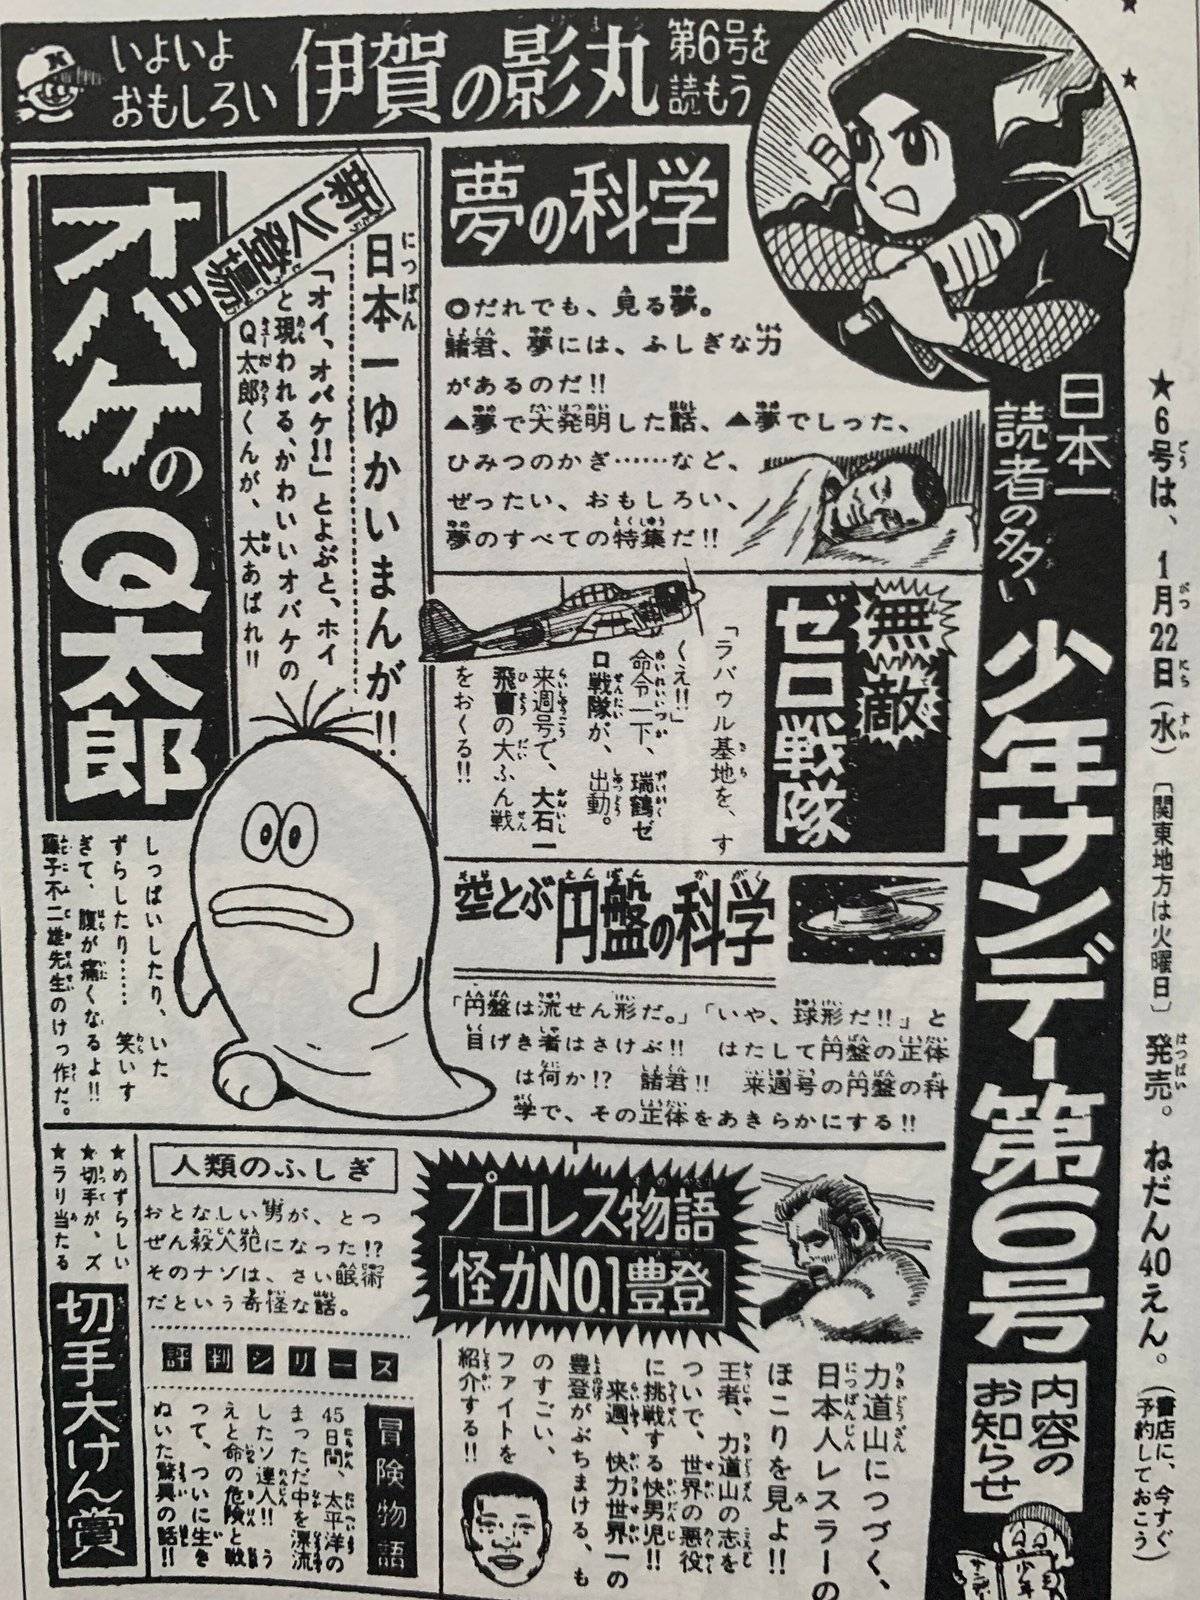 いよいよ
おもしろい
伊賀の影丸
第6号を
読もう
日本一
読者の多い
少年サンデー第6号
内容の
お知らせ
★6号は、1月22日(水)〔関東地方は火曜日〕発売。ねだん40えん。(書店に、今すぐ
予約しておこう)
夢の科学
◎だれでも、見る夢。
諸君、夢には、ふしぎな力
があるのだ!!
▲夢で大発明した話、▲夢でしった、
ひみつのかぎ……など、
ぜったい、おもしろい、
夢のすべての特集だ!!
新しく登場
オバケのQ太郎
日本一ゆかいまんが!!
「オイ、オバケ!!」とよぶと、ホイ
と現われる、かわいいオバケの
Q太郎くんが、大あばれ!!
しっぱいしたり、いた
ずらしたり……笑いす
ぎて、腹が痛くなるよ!!
藤子不二雄先生のけっ作だ。
無敵
ゼロ戦隊
「ラバウル基地を、す
くえ!!」
命令一下、瑞鶴ゼ
ロ戦隊が、出動。
来週号で、大石一
飛曹の大ふん戦
をおくる!!
空とぶ円盤の科学
「円盤は流せん形だ。」「いや、球形だ!!」と
目げき者はさけぶ!! はたして円盤の正体
は何か!? 諸君!! 来週号の円盤の科
学で、その正体をあきらかにする!!
プロレス物語
怪力NO.1豊登
力道山につづく、
日本人レスラーの
ほこりを見よ!!
王者、力道山の志を
ついで、世界の悪役
に挑戦する快男児!!
来週、快力世界一の
豊登がぶちまける、も
のすごい、
ファイトを
紹介する!!
人類のふしぎ
おとなしい男が、とつ
ぜん殺人犯になった!?
そのナゾは、さい眠術
だという奇怪な話。
評判シリーズ
冒険物語
45日間、太平洋の
まっただ中を漂流
したソ連人!! う
えと命の危険と戦
って、ついに生き
ぬいた驚異の話!!
★めずらしい
★切手が、ズ
★ラリ当たる
切手大けん賞
少年
サンデー